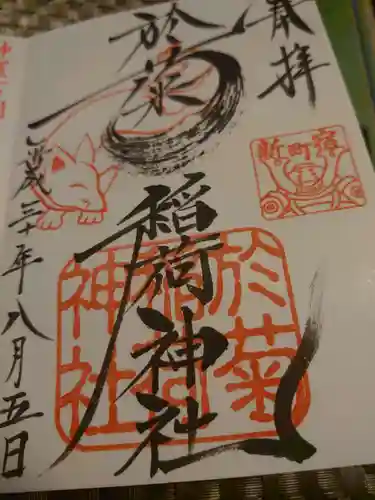 奉拝
新町宿
於菊
稲荷神社
於菊
稲荷
神社
平成三十年八月五日